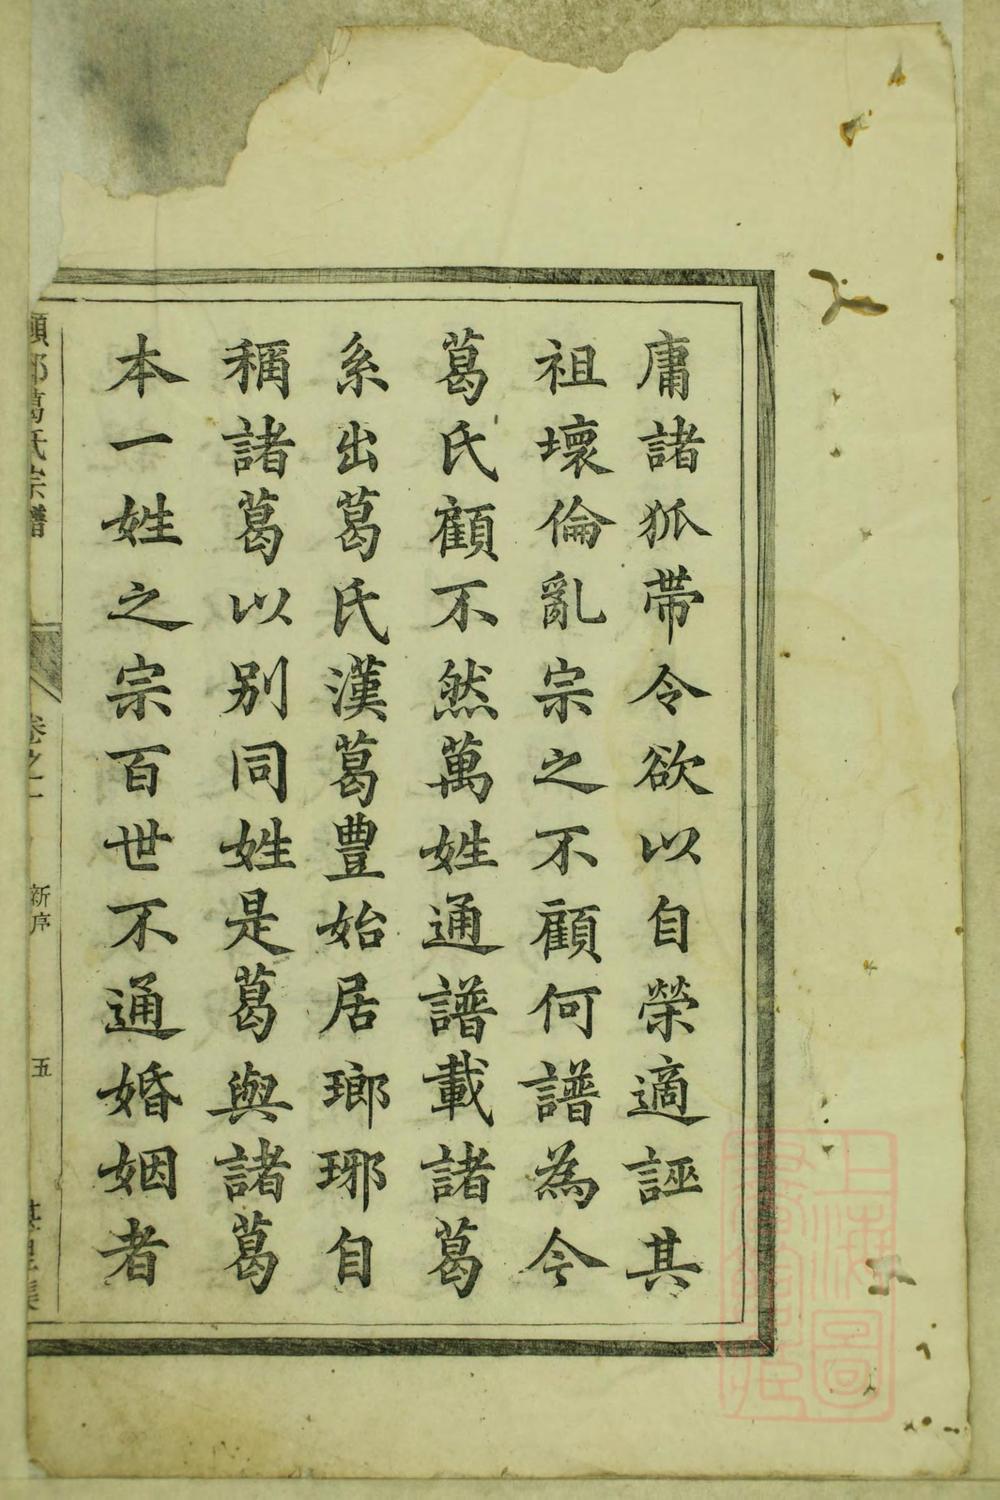 庸諸狐帶令欲以自榮適誣其
祖壞倫亂宗之不顧何譜為今
葛氏顧不然萬姓通譜載諸葛
系出葛氏漢葛豊始居瑯琊自
稱諸葛以别同姓是葛與諸葛
本一姓之宗百世不通婚姻者
葛氏宗譜
卷之一
新序
五
上海圖